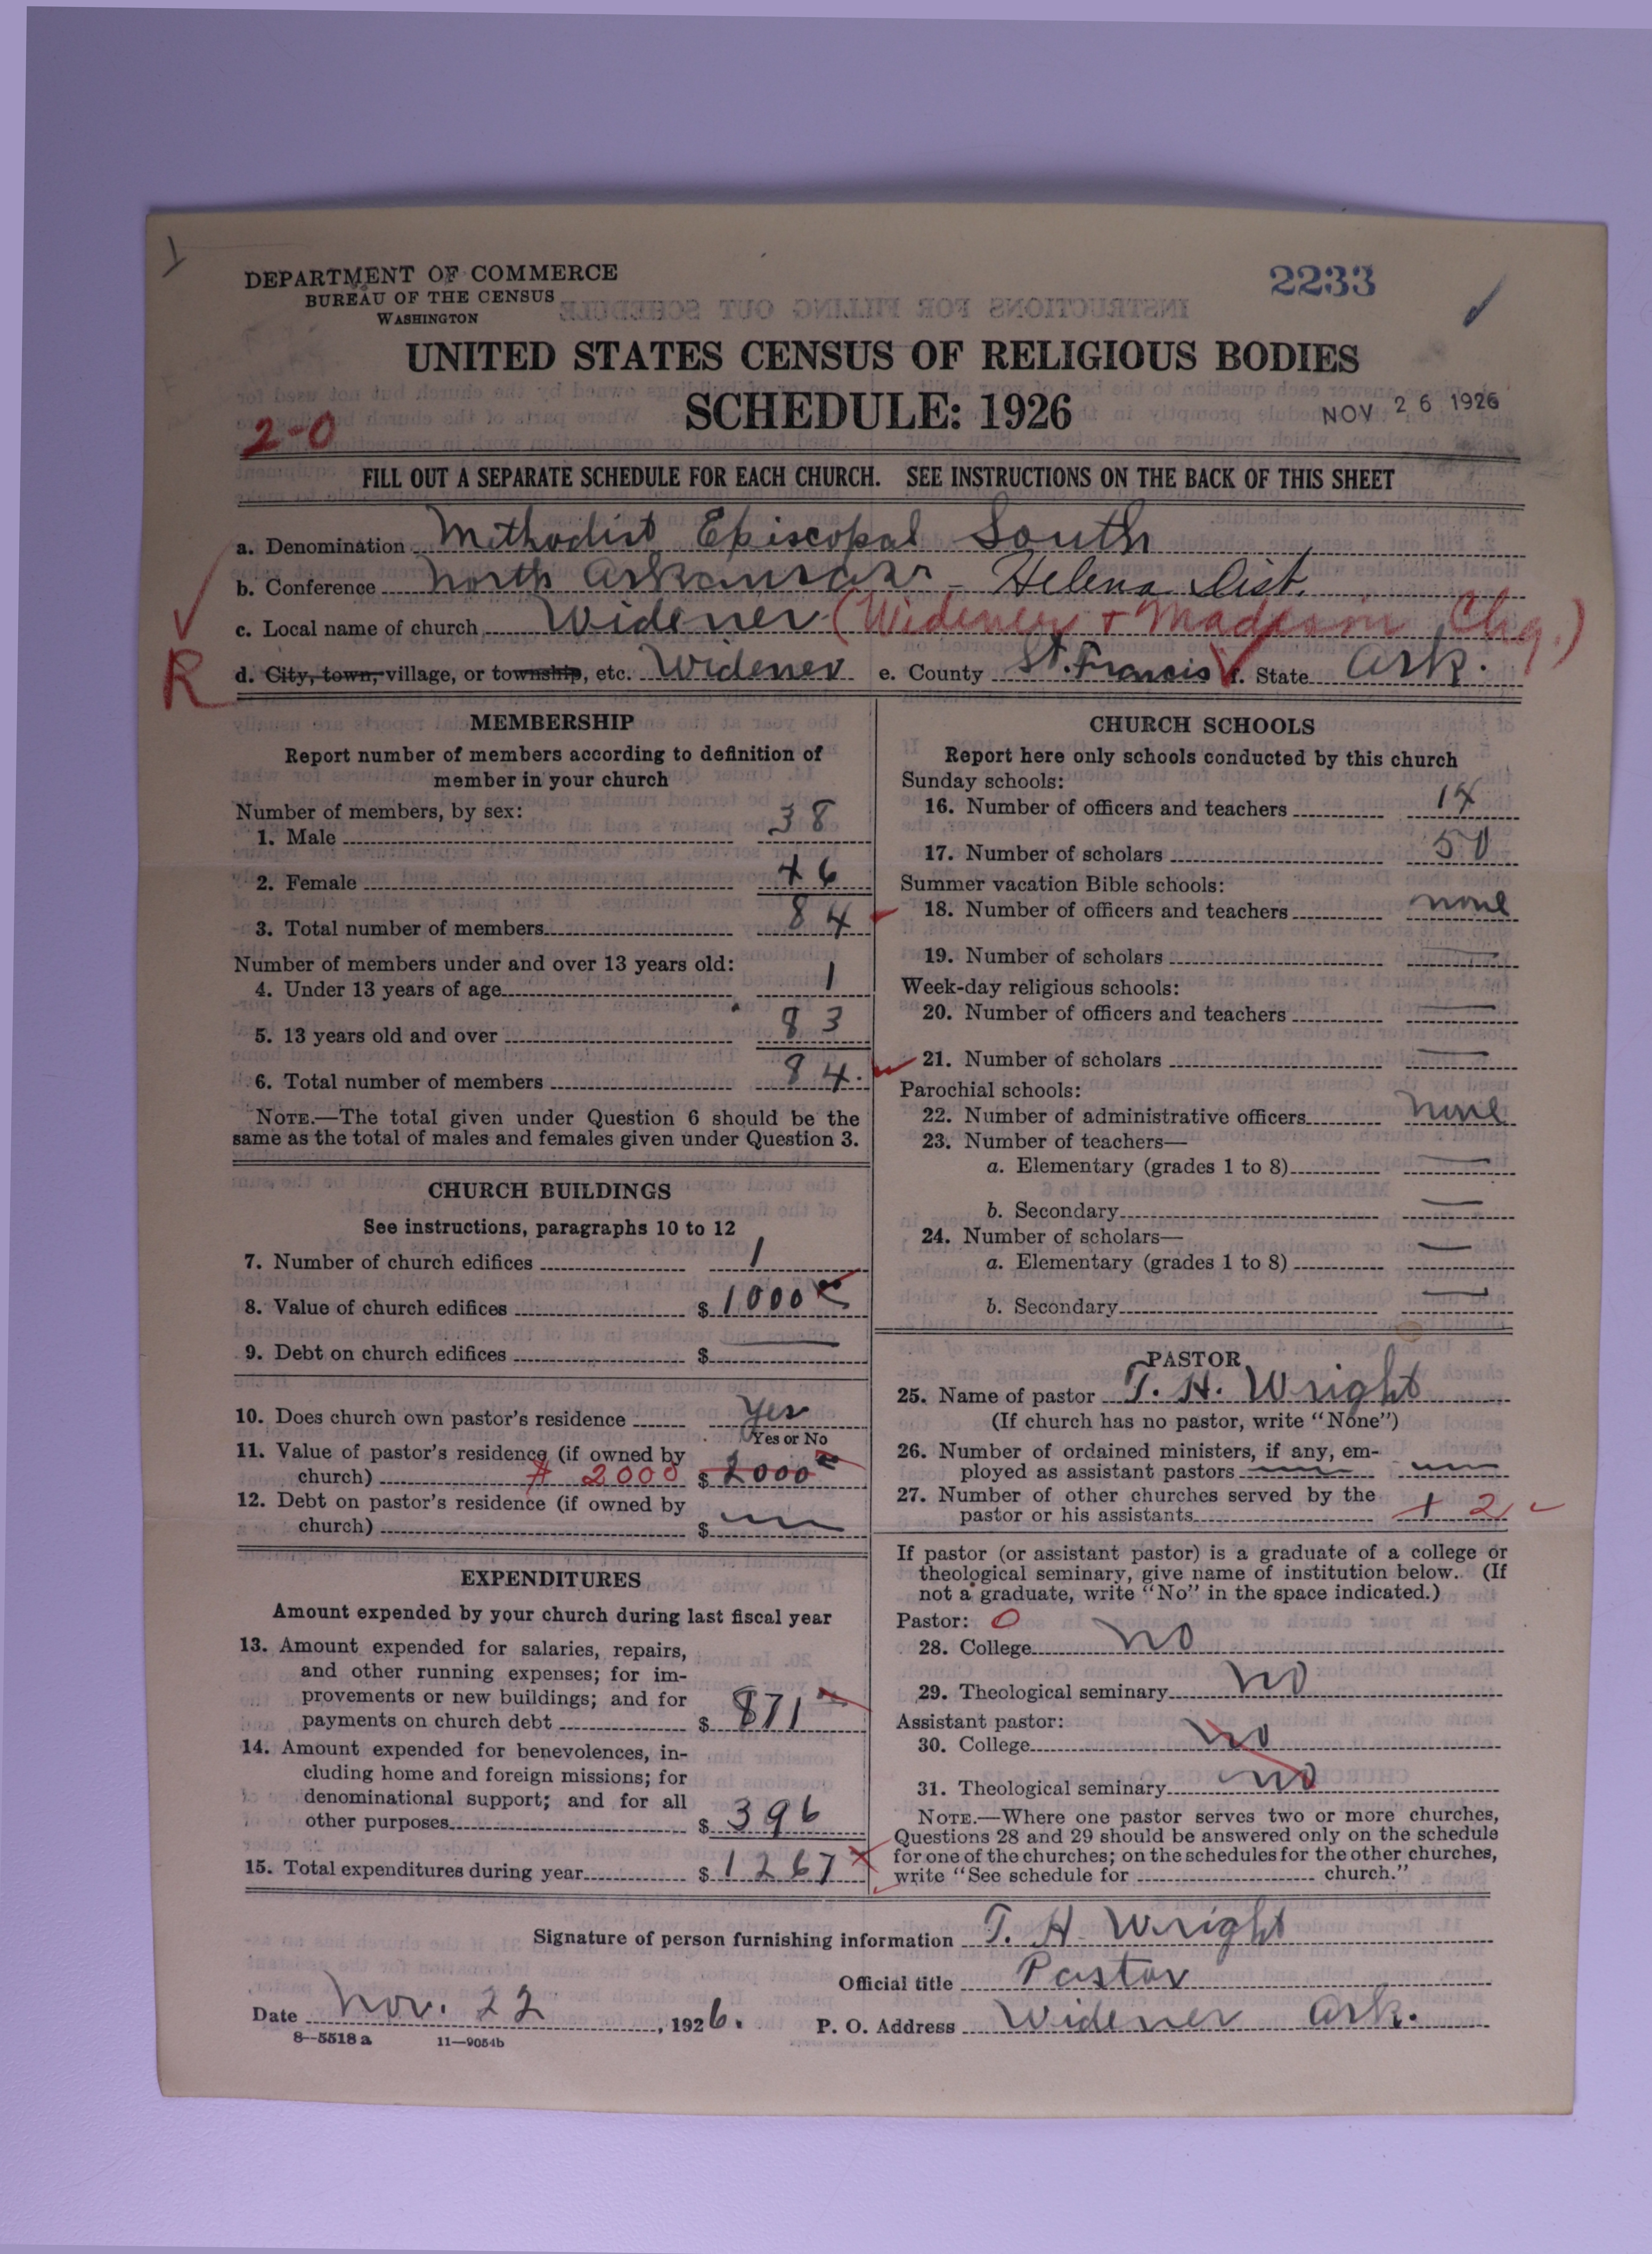 1
DEPARTMENT OF COMMERCE
BUREAU OF THE CENSUS
WASHINGTON
2233
UNITED STATES CENSUS OF RELIGIOUS BODIES
SCHEDULE: 1926
NOV 26 1926
2-0
FILL OUT A SEPARATE SCHEDULE FOR EACH CHURCH. SEE INSTRUCTIONS ON THE BACK OF THIS SHEET
a. Denomination Methodist Episcopal South
b. Conference North Arkansas - Helena Dist.
c. Local name of church Widener (Widener + Madison Chg.)
R
d. City, town, village, or township, etc. Widener e. County St. Francis f. State Ark.
MEMBERSHIP
Report number of members according to definition of
member in your church
Number of members, by sex:
1. Male 38
2. Female 46
3. Total number of members 84
Number of members under and over 13 years old:
4. Under 13 years of age 1
5. 13 years old and over 83
6. Total number of members 84.
NOTE.—The total given under Question 6 should be the
same as the total of males and females given under Question 3.
CHURCH BUILDINGS
See instructions, paragraphs 10 to 12
7. Number of church edifices 1
8. Value of church edifices $1000
9. Debt on church edifices $ —
10. Does church own pastor's residence Yes
Yes or No
11. Value of pastor's residence (if owned by
church) # 2000 $2000
12. Debt on pastor's residence (if owned by
church) $ —
EXPENDITURES
Amount expended by your church during last fiscal year
13. Amount expended for salaries, repairs,
and other running expenses; for im-
provements or new buildings; and for
payments on church debt $ 871
14. Amount expended for benevolences, in-
cluding home and foreign missions; for
denominational support; and for all
other purposes $ 396
15. Total expenditures during year $ 1267
CHURCH SCHOOLS
Report here only schools conducted by this church
Sunday schools:
16. Number of officers and teachers 14
17. Number of scholars 50
Summer vacation Bible schools:
18. Number of officers and teachers none
19. Number of scholars —
Week-day religious schools:
20. Number of officers and teachers —
21. Number of scholars —
Parochial schools:
22. Number of administrative officers none
23. Number of teachers—
a. Elementary (grades 1 to 8) —
b. Secondary —
24. Number of scholars—
a. Elementary (grades 1 to 8) —
b. Secondary —
PASTOR
25. Name of pastor T. H. Wright
(If church has no pastor, write "None")
26. Number of ordained ministers, if any, em-
ployed as assistant pastors — —
27. Number of other churches served by the
pastor or his assistants 1 2
If pastor (or assistant pastor) is a graduate of a college or
theological seminary, give name of institution below. (If
not a graduate, write "No" in the space indicated.)
Pastor: 0
28. College no
29. Theological seminary no
Assistant pastor:
30. College no
31. Theological seminary no
NOTE.—Where one pastor serves two or more churches,
Questions 28 and 29 should be answered only on the schedule
for one of the churches; on the schedules for the other churches,
write "See schedule for church."
Signature of person furnishing information T. H. Wright
Official title Pastor
Date Nov. 22, 1926. P. O. Address Widener Ark.
8—5518 a 11—9054b